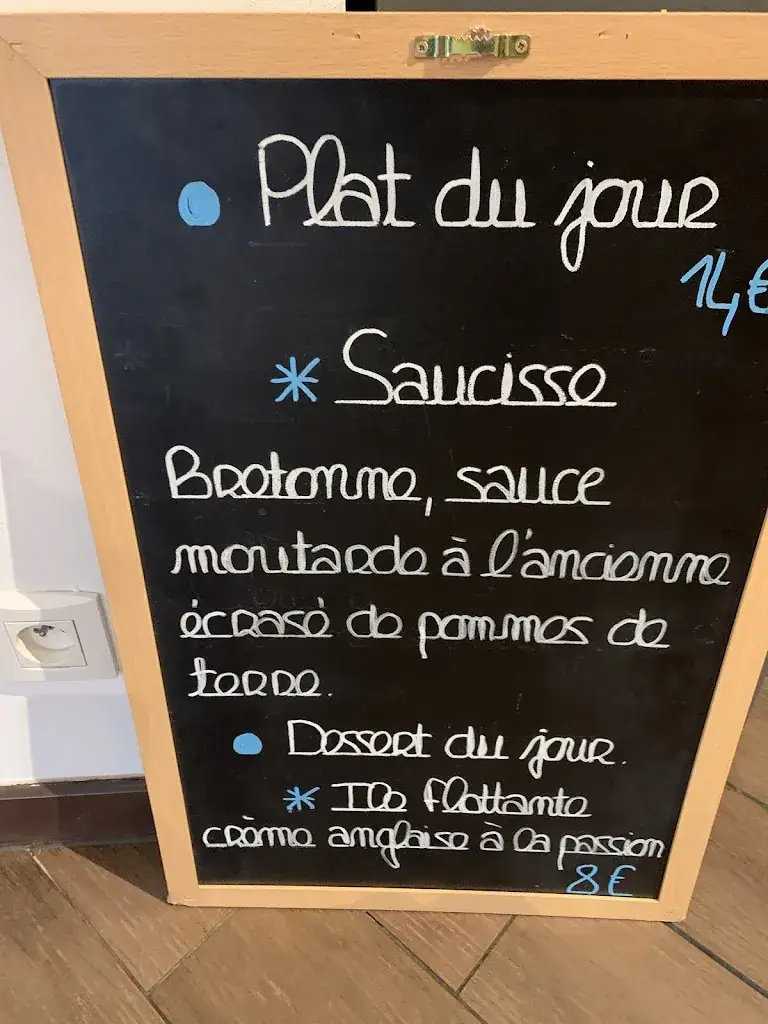 Plat du jour
14€
* Saucisse
Bretonne, sauce
moutarde à l'ancienne
écrasé de pommes de
terre.
Dessert du jour.
* Ile flottante
crème anglaise à la passion
8€